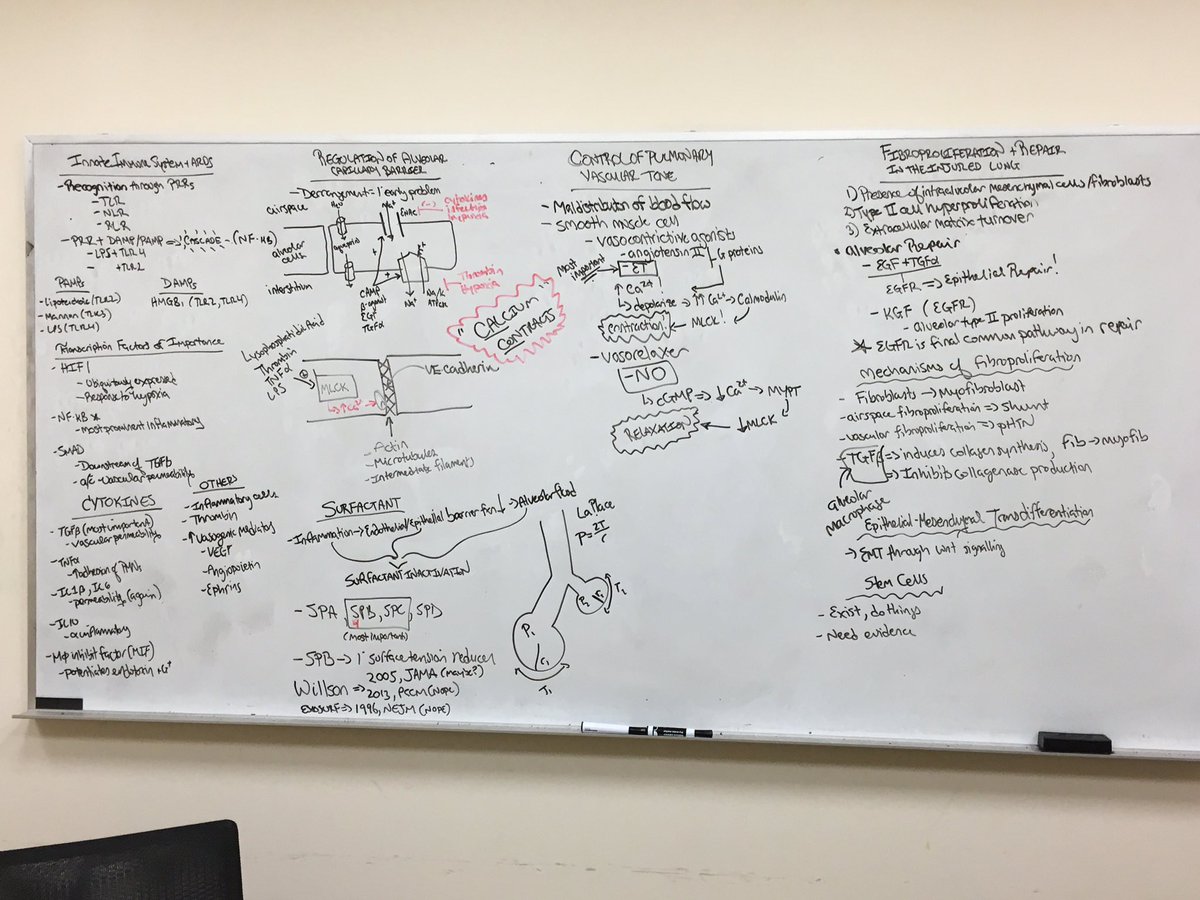 Innate Immune System + ARDS
- Recognition through PRRs
- TLR
- NLR
- RLR
- PRR + DAMP/PAMP => CASCADE - (NF-κB)
- LPS + TLR4
- + TLR2
PAMPs
- Lipoteichoic (TLR2)
- Mannan (TLR3)
- LPS (TLR4)
DAMPs
HMGB1 (TLR2, TLR4)
Transcription Factors of Importance
- HIF1
- Ubiquitously expressed
- Response to hypoxia
- NF-κB *
- Most prominent inflammatory
- SMAD
- Downstream of TGFb
- Vascular permeability
CYTOKINES
- TGFβ (most important)
- vascular permeability
- TNFα
- Adhesion of PMNs
- IL1β, IL6
- permeability (again)
- IL10
- inflammatory
- Mφ inhibit factor (MIF)
- potentiates endotoxin
OTHERS
- Inflammatory cells
- Thrombin
- ↑ Vasogenic Mediators
- VEGF
- Angiopoietin
- Ephrins
REGULATION OF ALVEOLAR
CAPILLARY BARRIER
- Derrangement = 1° early problem
airspace
alveolar
cells
interstitium
H2O
aquaporin
Na+
ENAC
(-) cytokines
infection
hypoxia
+
+
K+
cAMP
β-agonist
EGF
TGFα
Na+
Na/K
ATPase
Thrombin
Hypoxia
"CALCIUM
CONTRACTS"
Lysophosphatidic Acid
Thrombin
TNFα
LPS
MLCK
↳ ↑Ca2+ →
VE-cadherin
- Actin
- Microtubules
- Intermediate filaments
SURFACTANT
- Inflammation → Endothelial/Epithelial barrier fxn ↓ → Alveolar flood
SURFACTANT INACTIVATION
- SPA, SPB, SPC, SPD
(most important)
- SPB → 1° surface tension reducer
Willson => 2005, JAMA (maybe?)
2013, PCCM (nope)
EXOSURF => 1996, NEJM (NOPE)
La Place
P = 2T/r
P1
r1
T1
P2
r2
T2
CONTROL OF PULMONARY
VASCULAR TONE
- Maldistribution of blood flow
- Smooth muscle cell
- vasocontrictive agonists
- angiotensin II
G proteins
Most important
- ET
↑Ca2+!
↳ depolarize → ↑↑Ca2+ → Calmodulin
contraction! ← MLCK!
- vasorelaxer
- NO
↳ cGMP => ↓Ca2+ → MYPT
RELAXATION ← ↓MLCK
FIBROPROLIFERATION + REPAIR
IN THE INJURED LUNG
1) Presence of intraalveolar mesenchymal cells/fibroblasts
2) Type II cell hyperproliferation
3) Extracellular matrix turnover
• alveolar Repair
- EGF + TGFα
EGFR => Epithelial Repair!
- KGF (EGFR)
- alveolar type II proliferation
* EGFR is final common pathway in repair
Mechanisms of Fibroproliferation
- Fibroblasts → Myofibroblast
- airspace fibroproliferation => shunt
- vascular fibroproliferation => pHTN
- TGFβ => induces collagen synthesis, Fib → myofib
=> Inhibits collagenase production
alveolar
macrophage
Epithelial-Mesenchymal Transdifferentiation
→ EMT through wnt signalling
Stem Cells
- Exist, do things
- Need evidence